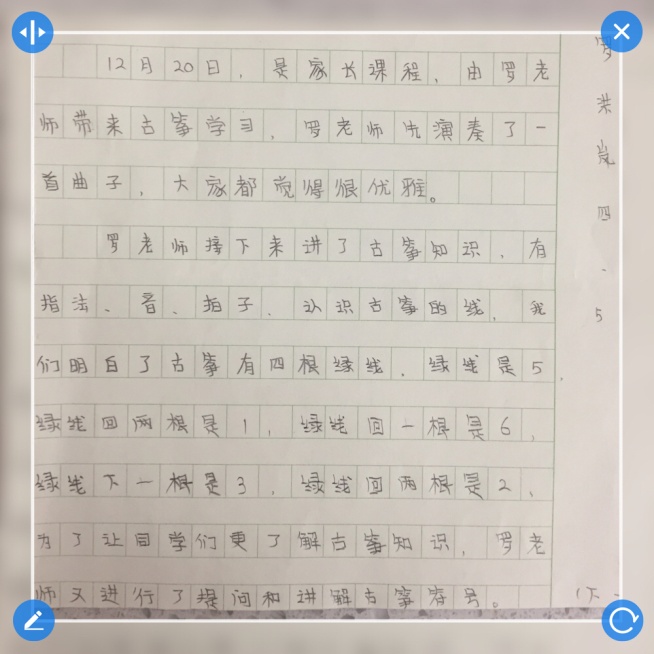 12月20日,是家长课程,由罗老
师带来古筝学习,罗老师先演奏了一
首曲子,大家都觉得很优雅。
罗老师接下来讲了古筝知识,有
指法、音、拍子、认识古筝的线,我
们明白了古筝有四根绿线,绿线是5,
绿线回两根是1,绿线回一根是6,
绿线下一根是3,绿线回两根是2,
为了让同学们更了解古筝知识,罗老
师又进行了提问和讲解古筝符号。
四、5
(下